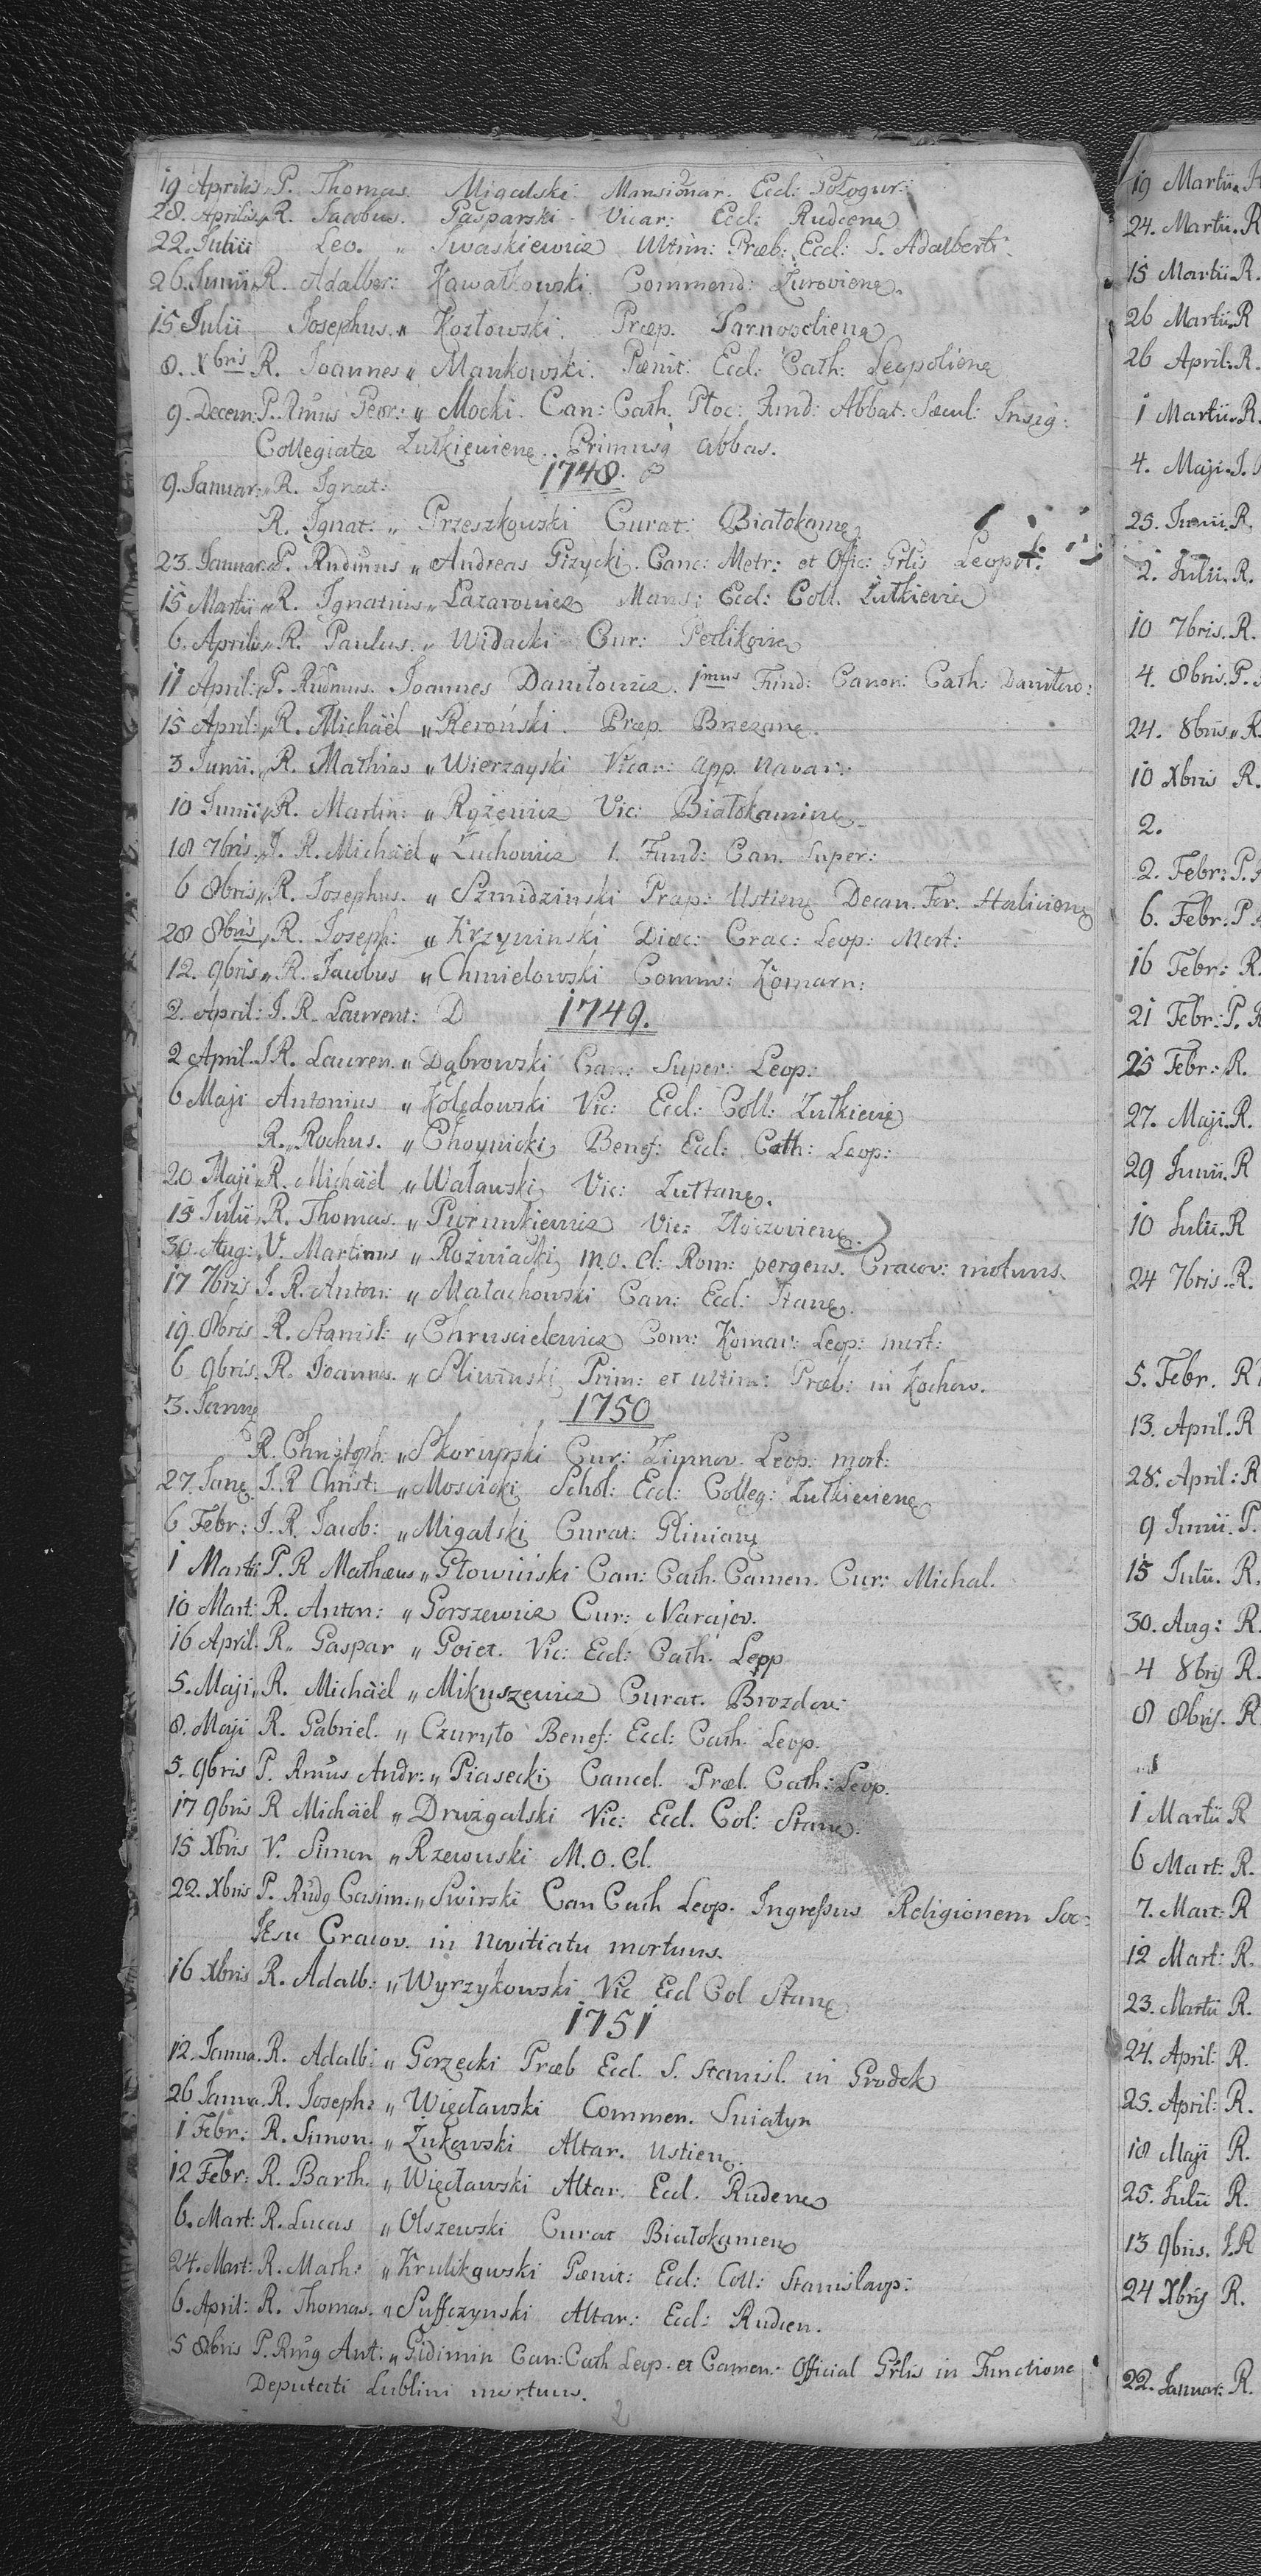 19 Aprilis P. Thomas Migalski Mansionar. Eccl: Pologur:
28. Aprilis R. Jacobus. Gasparski Vicar: Eccl: Rudiene
22. Julii Leo. „ Iwaskiewicz Ultim: Præb: Eccl: S. Adalberti
26. Junii R. Adalber: Kawałkowski. Commend: Żuroviene.
15 Julii Josephus. „ Kozłowski. Præp. Tarnopoliene
8. Xbris R. Joannes „ Mankowski. Pœnit: Eccl: Cath: Leopoliene
9. Decem: P. Rmus Geor: „ Mocki. Can: Cath. Ploc: Fund: Abbat: Sæcul: Insig:
Collegiatæ Zułkieviene. Primus abbas.
1748.
9. Januar: „ R. Ignat:
R. Ignat: „ Przeszkowski Curat: Białokame
23. Januar. P. Rndmus „ Andreas Giżycki. Canc: Metr: et Offic: Grlis Leopol:
15 Martii „ R. Ignatius „ Lazarowicz Mans: Eccl: Coll. Żułkievie
6. Aprilis „ R. Paulus. „ Widacki Cur: Petlikovie
11 April: „ P. Rndmus. Joannes Daniłowicz. 1mus Fund: Canon: Cath: Daniłow:
15 April: „ R. Michäel „ Reroński. Præp. Brzezane.
3 Junii. „ R. Mathias „ Wierzayski Vicar: app. Navar:
10 Junii „ R. Martin: „ Ryżewicz Vic: Białokamiene
18 7bris. J. R. Michäel „ Żuchowicz 1. Fund: Can. Super:
6 8bris „ R. Josephus. „ Szmidziński Præp: Ustiene Decan. For. Haliciene
28 8bris „ R. Joseph: „ Krzywiński Diœc: Crac: Leop: Mort:
12. 9bris „ R. Jacobus „ Chmielowski Comm: Komarn:
2. April: J. R. Laurent: D 1749.
2 April. J R. Lauren. „ Dąbrowski Can: Super: Leop:
6 Maji Antonius „ Kolędowski Vic: Eccl: Coll: Zułkievie
R. „ Rochus. „ Choynicki Benef: Eccl: Cath: Leop:
20 Maji „ R. Michäel „ Waławski Vic: Zułtane.
15 Julii „ R. Thomas. „ Piorunkiewicz Vic: Złoczoviene.
30. Aug: „ V. Martinus „ Roźniacki m. o. Cl: Rom: pergens. Cracov: motuus.
17 7bris J. R. Anton: „ Małachowski Can: Eccl: Stane.
19. 8bris R. Stanisl: „ Chruscielewicz Com: Komar: Leop: mort:
6 9bris. R. Joannes. „ Sliwinski Prim: et ultim: Præb: in Kochaw.
3. Janue 1750
R. Christoph: „ Skorupski Cur: Zimnov. Leop: mort:
27. Jane J. R Christ: „ Moscicki Schol: Eccl: Colleg: Zułkieviene
6 Febr: J. R. Jacob: „ Migalski Curat: Gliniane
1 Martii P. R Mathæus „ Głowiński Can: Cath. Camen. Cur: Michal.
10 Mart: R. Anton: „ Gorszewicz Cur: Narajov.
16 April. R. „ Gaspar „ Goiet. Vic: Eccl: Cath: Leop
5. Maji „ R. Michäel „ Mikuszewicz Curat. Brozdov:
8. Maji R. Gabriel. „ Czuryło Benef: Eccl: Cath. Leop.
5. 9bris P. Rmus Andr: „ Piasecki Cancel. Præl. Cath: Leop.
17 9bris R Michäel „ Drużgalski Vic: Eccl. Col: Stane.
15 Xbris V. Simon „ Rzewuski M. O. Cl.
22. Xbris P. Rndg Casim: „ Swirski Can Cath Leop. Ingreſsus Religionem Soc:
Jesu Cracov. in Novitiatu mortuus.
16 Xbris R. Adalb: „ Wyrzykowski Vic Eccl Col Stane
1751
12. Janua. R. Adalb: „ Gorzecki Præb Eccl. S. Stanisl. in Grodek
26 Janua. R. Joseph: „ Więcławski Commen. Sniatyn
1 Febr: R. Simon. „ Żukowski Altar. Ustiene.
12 Febr: R. Barth. „ Więcławski Altar. Eccl. Rudene
6. Mart: R. Lucas „ Olszewski Curat Białokamene
24. Mart: R. Math: „ Krulikowski Pœnit: Eccl: Coll: Stanislaop:
6. April: R. Thomas. „ Suffczynski Altar: Eccl: Rudien.
5 8bris P. Rmg Ant: „ Gidimin Can: Cath Leop. et Camen: Official Grlis in Functione
Deputati Lublini mortuus.
2
19 Martii
24. Martii. R
15 Martii. R.
26 Martii. R
26 April: R.
1 Martii. R.
4. Maji. J.
25. Junii. R.
2. Julii. R.
10 7bris. R.
4. 8bris. P.
24. 8bris „ R.
10 Xbris R.
2.
2. Febr: P.
6. Febr. P
16 Febr: R.
21 Febr: P.
25 Febr: R.
27. Maji. R.
29 Junii. R
10 Julii. R
24 7bris. R.
5. Febr. R
13. April. R
28. April: R
9 Junii. P.
15 Julii. R.
30. Aug: R.
4 8bris R.
8 8bris. R
1 Martii R
6 Mart: R.
7. Mart: R
12 Mart: R.
23. Martii R.
24. April: R.
25. April: R.
18 Maji R.
25. Julii R.
13 9bris. J. R
24 Xbris R.
22. Januar: R.